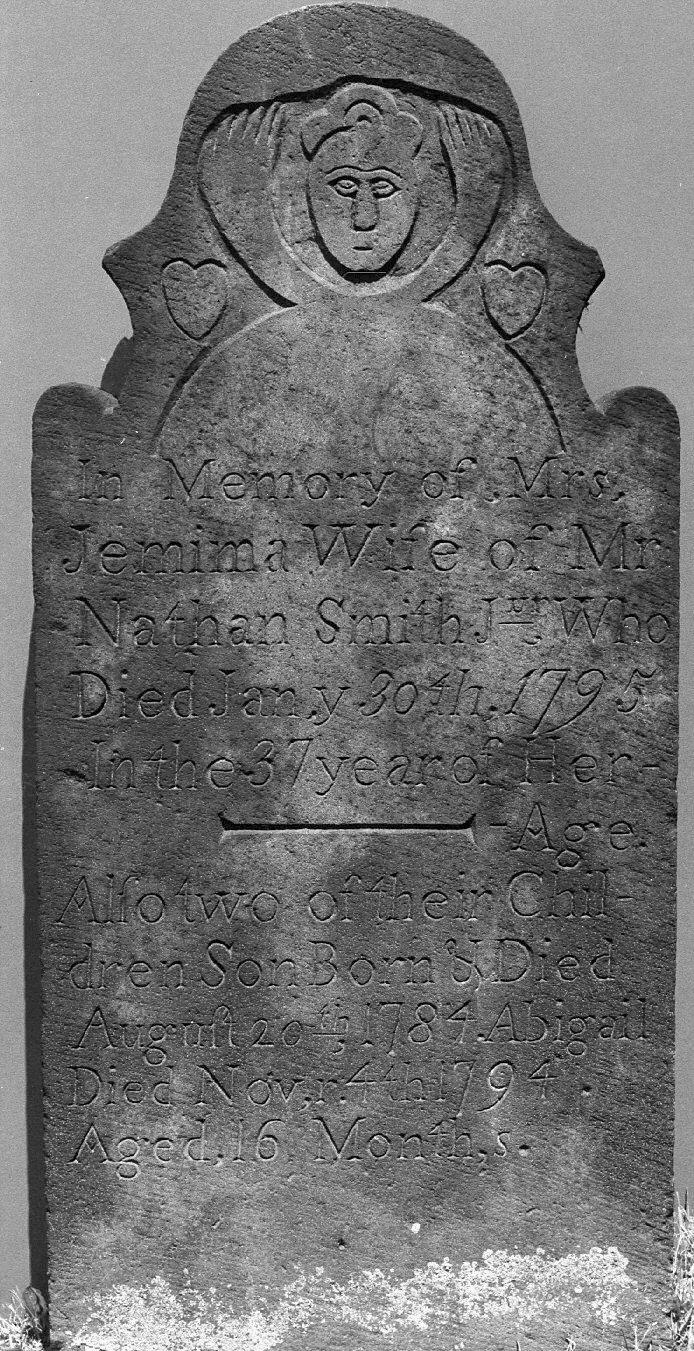 In Memory of Mrs,
Jemima Wife of Mr
Nathan Smith Jnr Who
Died Jan,y 30th, 1795
In the 37 year of Her-
-Age.
Alſo two of their Chil-
dren Son Born & Died
Auguſt 20th, 1784. Abigail
Died Nov,r. 4th 1794.
Aged, 16 Month,s.